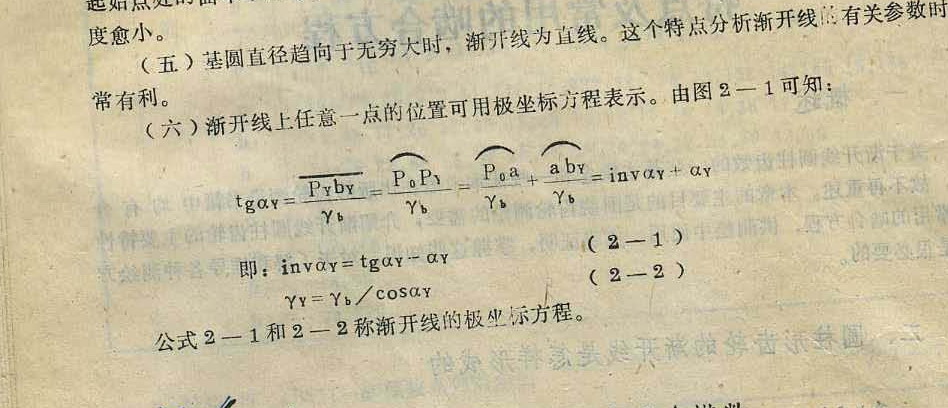 度愈小。
(五)基圆直径趋向于无穷大时,渐开线为直线。这个特点分析渐开线的有关参数时
常有利。
(六)渐开线上任意一点的位置可用极坐标方程表示。由图2—1可知:
tgαY = \overline{PYbY}/γb = \overset{⌒}{P0PY}/γb = \overset{⌒}{P0a}/γb + \overset{⌒}{abY}/γb = invαY + αY
即:invαY = tgαY − αY (2—1)
γY = γb/cosαY (2—2)
公式2—1和2—2称渐开线的极坐标方程。